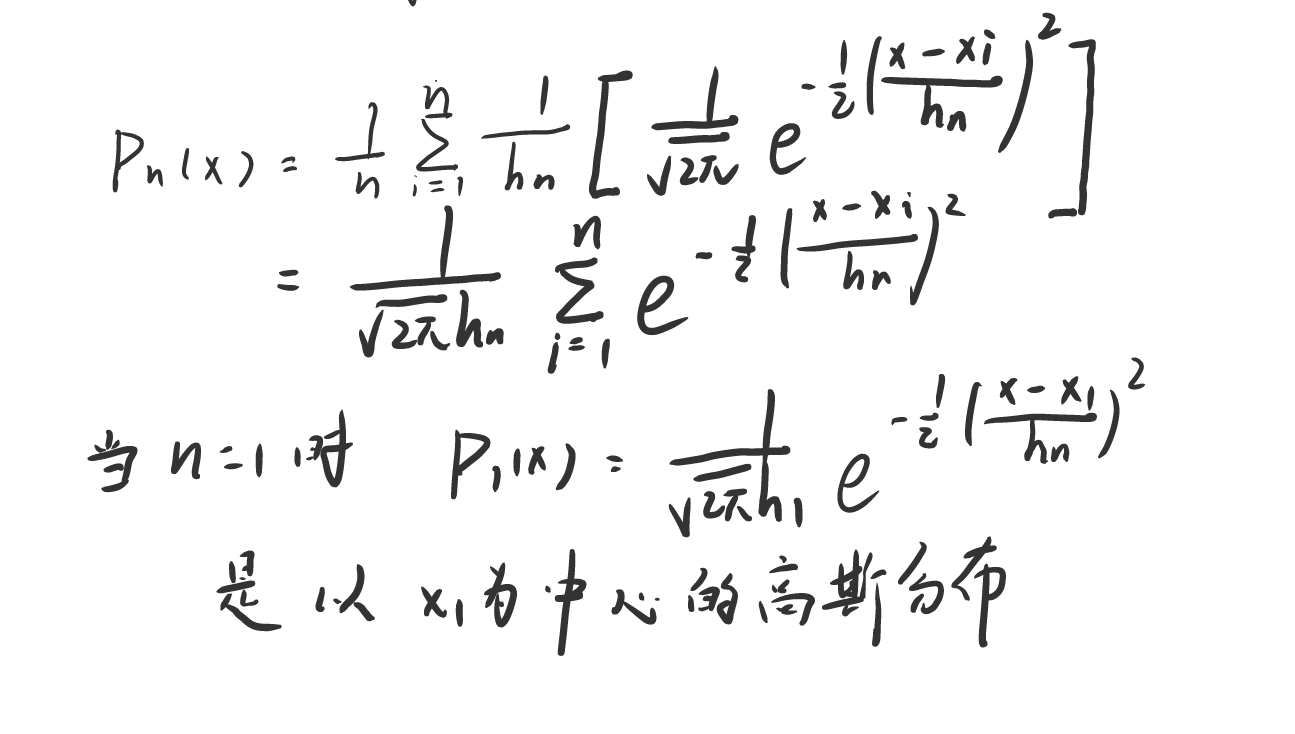 Pₙ(x) = \frac{1}{n} \sum_{i=1}^{n} \frac{1}{hₙ} [ \frac{1}{\sqrt{2π}} e^{-\frac{1}{2}(\frac{x-xi}{hₙ})^2} ]
= \frac{1}{\sqrt{2π}hₙ} \sum_{i=1}^{n} e^{-\frac{1}{2}(\frac{x-xi}{hₙ})^2}
当 n=1时 P₁(x) = \frac{1}{\sqrt{2π}h₁} e^{-\frac{1}{2}(\frac{x-x₁}{hₙ})^2}
是以 x₁为中心的高斯分布